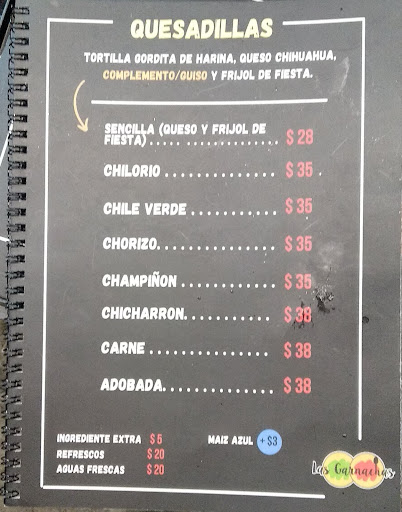 QUESADILLAS
TORTILLA GORDITA DE HARINA, QUESO CHIHUAHUA,
COMPLEMENTO/GUISO Y FRIJOL DE FIESTA.
SENCILLA (QUESO Y FRIJOL DE
FIESTA)..... .............. $ 28
CHILORIO ............ $ 35
CHILE VERDE........... $ 35
CHORIZO.............. $ 35
CHAMPIÑON ............ $ 35
CHICHARRON........... $ 38
CARNE ............... $ 38
ADOBADA.............. $ 38
INGREDIENTE EXTRA $ 5
REFRESCOS $ 20
AGUAS FRESCAS $ 20
MAIZ AZUL + $3
Las Garnachas